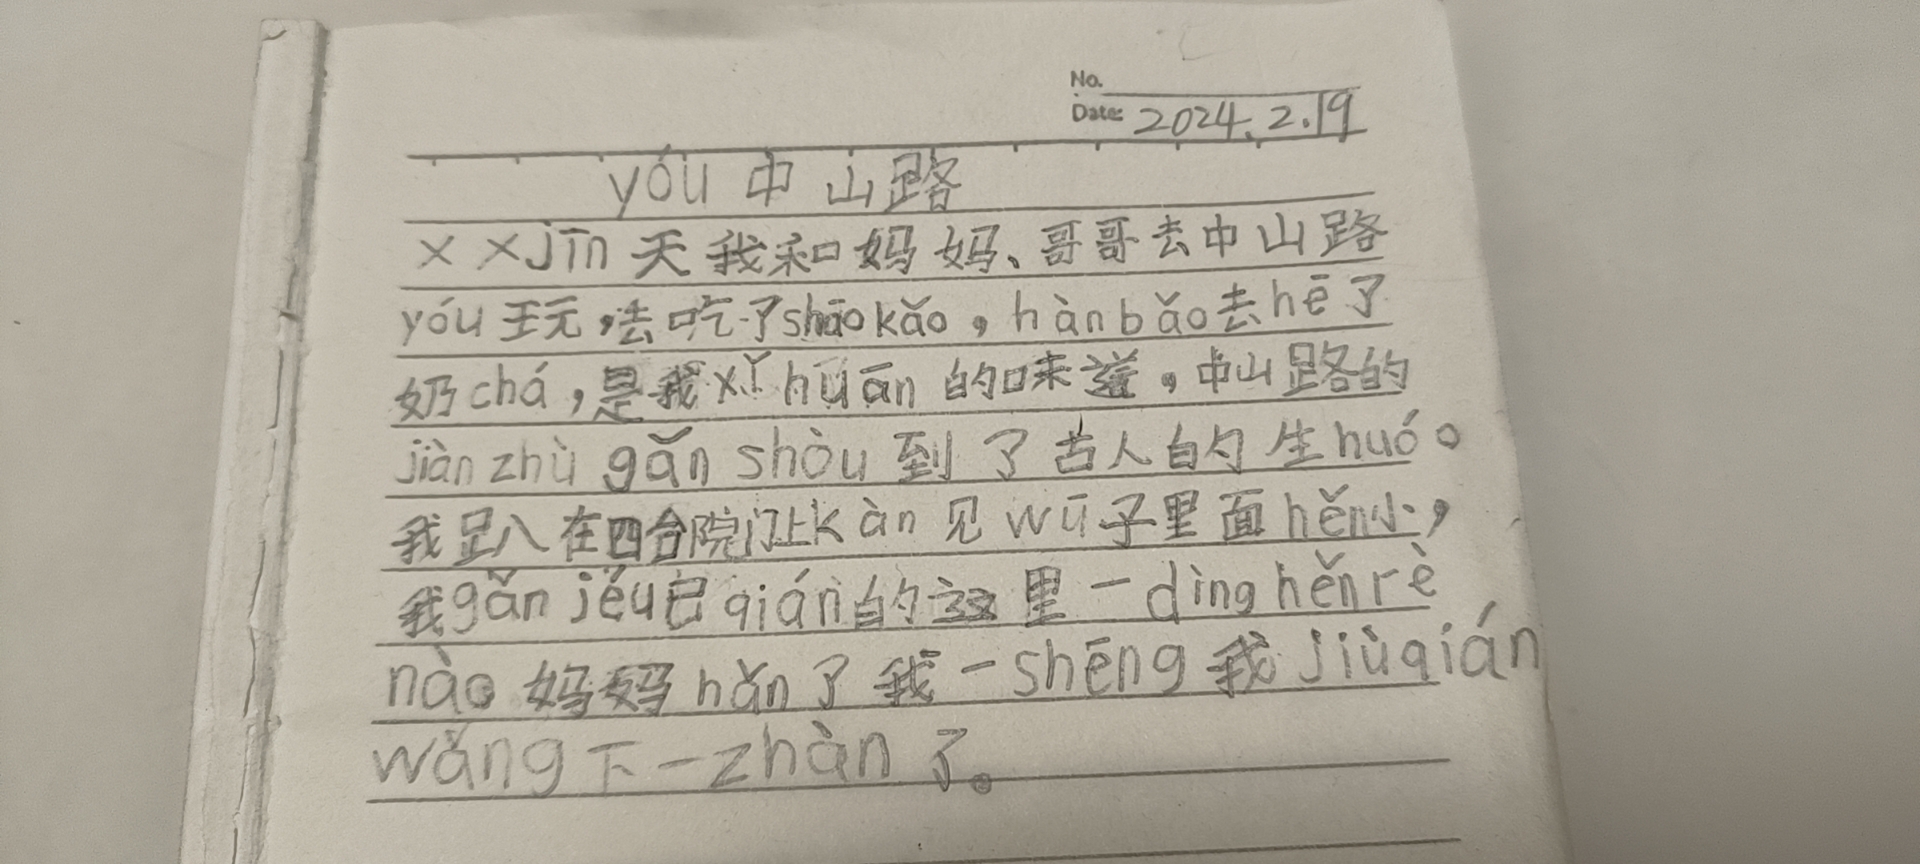 No.
Date: 2024.2.19
yóu 中山路
××jīn天我和妈妈、哥哥去中山路
yóu玩,去吃了shāokǎo,hànbǎo去hē了
奶chá,是我xǐhuān的味道,中山路的
jiànzhù gǎnshòu到了古人的生huó。
我趴在四合院门上kàn见wū子里面hěn小,
我gǎnjěu已qián的这里一dìnghěnrè
nào妈妈hǎn了我一shēng我jiùqián
wǎng下一zhàn了。